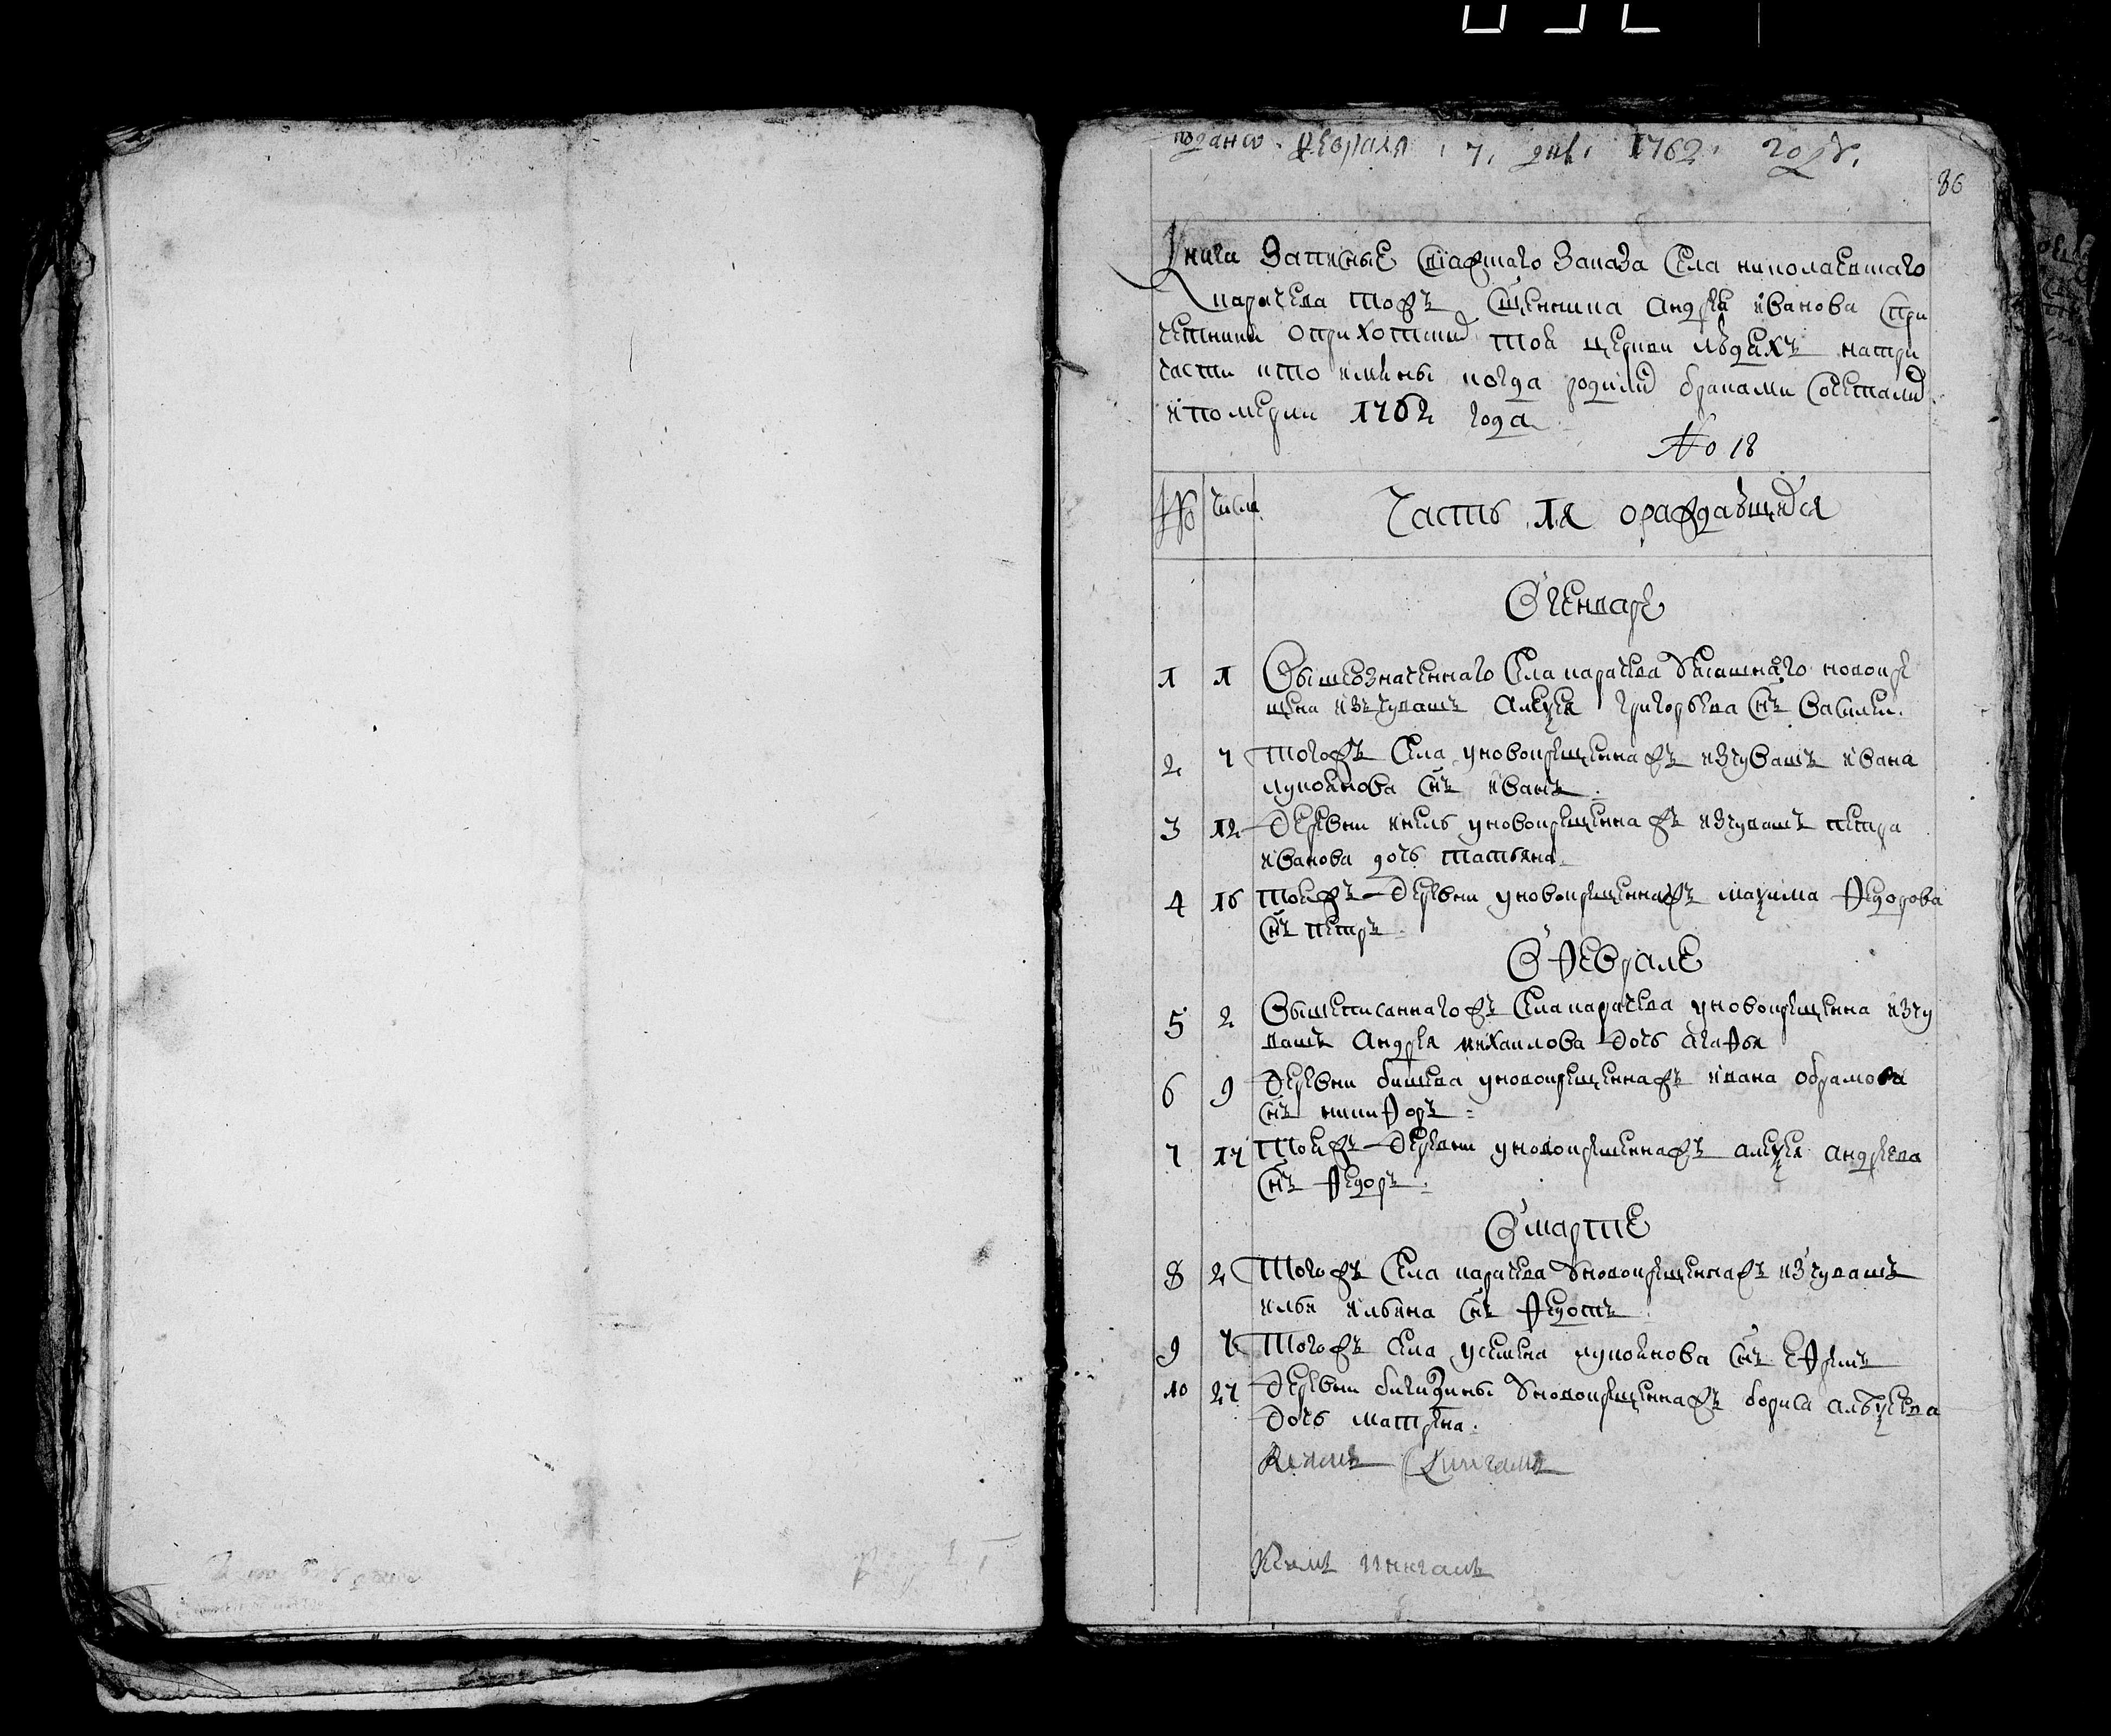 подано февраля 7 дня 1762 году
36
Книга записные свіажшаго заказа села николаевшаго
карачева тожъ священника андрея иванова спри
четники оприхоткихъ той церкви людехъ натри
части кто имяны когда родились браками сочетались
ипомерли 1762 года
№ 18
№ числа Часть 1я ораждавшихся
Вгенваре
1 1 Вышеозначеннаго села карачева уясашнаго новокре
щена изъчувашъ алексея григорьева снъ василеи
2 7 тогожъ села уновокрещенажъ изчувашъ ивана
лукоянова снъ иванъ
3 12 деревни уновокрещенажъ изчувашъ петра
иванова дочь татьяна
4 16 тоейжъ деревни уновокрещенажъ максима федорова
снъ петръ
В феврале
5 2 Вышеписаннагожъ села карачева уновокрещена изчу
вашъ андрея михаилова дочь агафья
6 9 деревни бишева уновокрещенажъ ивана обрамова
снъ никифоръ
7 17 тоейжъ деревни уновокрещенажъ алексея андреева
снъ федоръ
Вмарте
8 2 тогожъ села карачева уновокрещенажъ изчувашъ
ильи ильина снъ федотъ
9 7 тогожъ села усемена лукоянова снъ ефремъ
10 27 деревни уновокрещенажъ бориса алексеева
дочь матрена